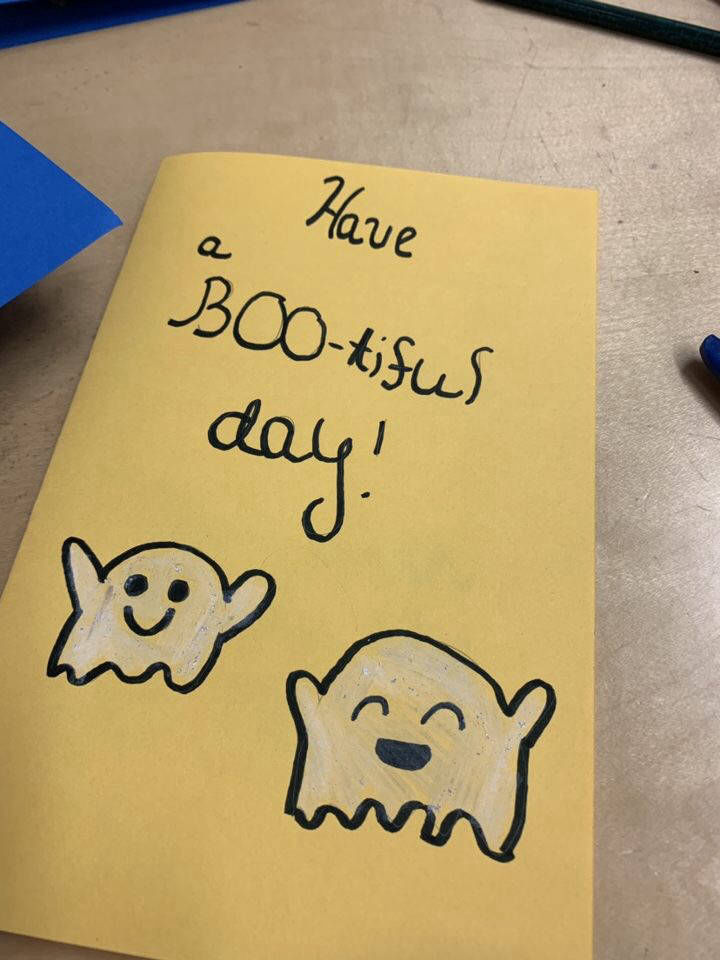 Have
a
BOO-tiful
day!